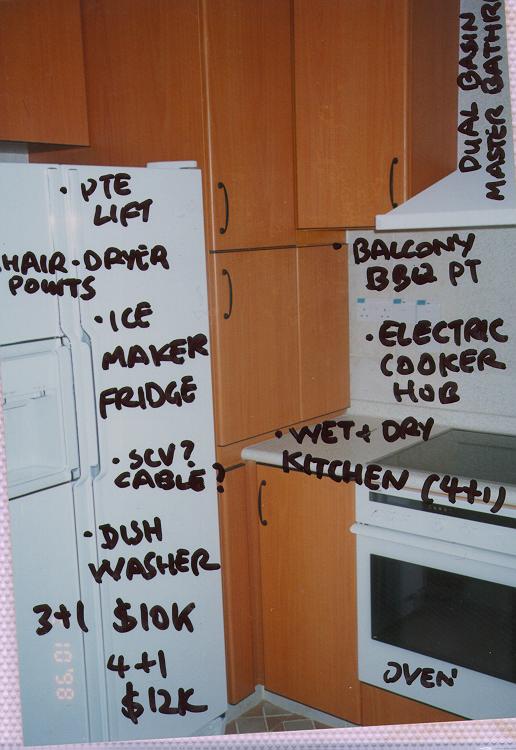 DUAL BASIN
MASTER BATHR
· PTE
LIFT
HAIR-DRYER
POINTS
· ICE
MAKER
FRIDGE
· SCV?
CABLE?
· DISH
WASHER
3+1 $10K
4+1
$12K
· BALCONY
BBQ PT
· ELECTRIC
COOKER
HOB
· WET & DRY
KITCHEN (4+1)
OVEN